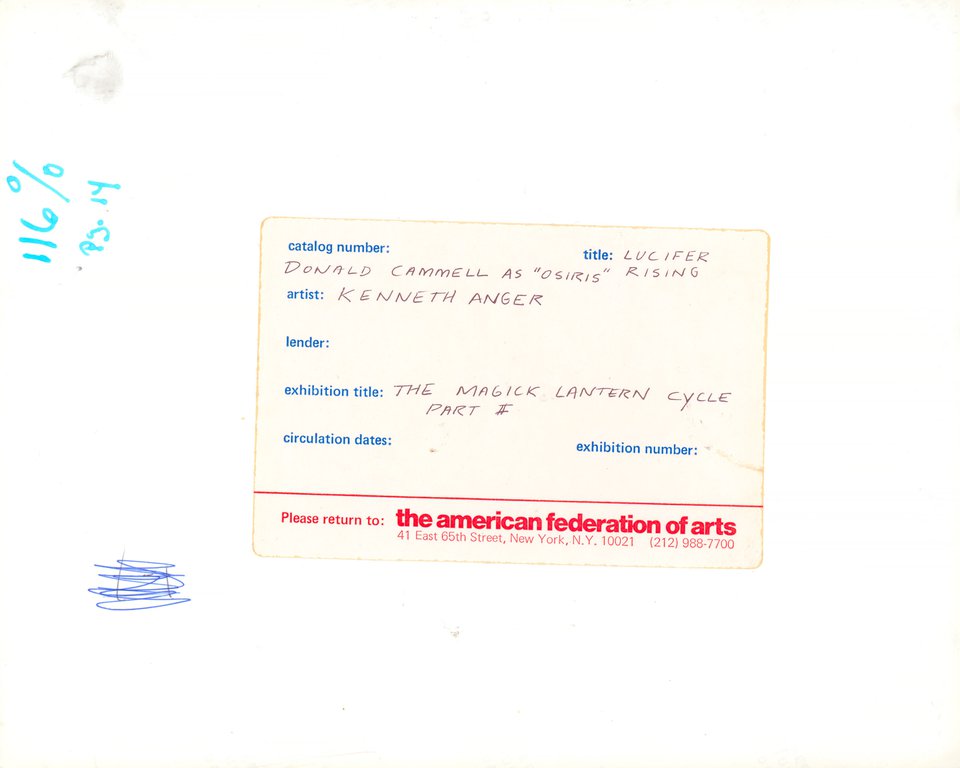 116%
pg. 14
catalog number:
title: LUCIFER
DONALD CAMMELL AS "OSIRIS" RISING
artist: KENNETH ANGER
lender:
exhibition title: THE MAGICK LANTERN CYCLE
PART #
circulation dates:
exhibition number:
Please return to: the american federation of arts
41 East 65th Street, New York, N.Y. 10021 (212) 988-7700